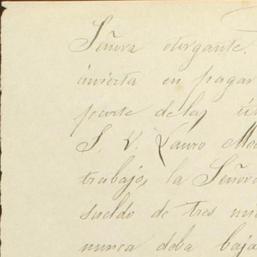 Señora otorgante.
invierta en pagar
parte de las
S. V. Lauro
trabajo, la Señora
sueldo de tres
nunca deba baja